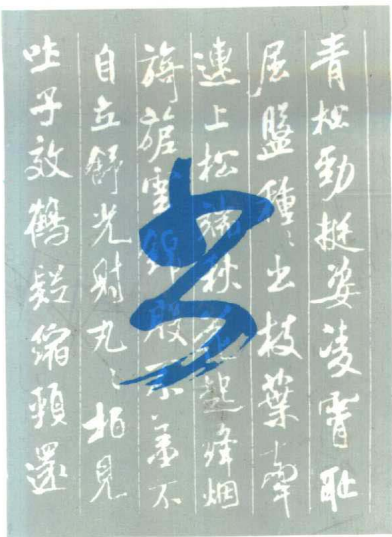 青松勁挺姿凌霄耻
屈盤種〻出枝葉牽
連上松端秋花起絳烟
旖旎雲錦殷不羞不
自立舒光射丸〻柏見
吐子效鶴疑縮頸還
书